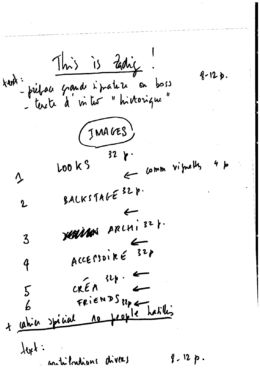 This is Zadig !
text :
- préface grande signature ou boss 8-12 p.
- texte d'intro "historique"
IMAGES
32 p.
1 LOOKS
← comm vignettes 4 p
2 BACKSTAGE 32 p.
←
3 ARCHI 32 p.
←
4 ACCESSOIRE 32 p
←
32 p.
5 CRÉA ←
6 FRIENDS 32 p ←
+ cahier spécial 10 people habillés
text :
contributions divers 8-12 p.